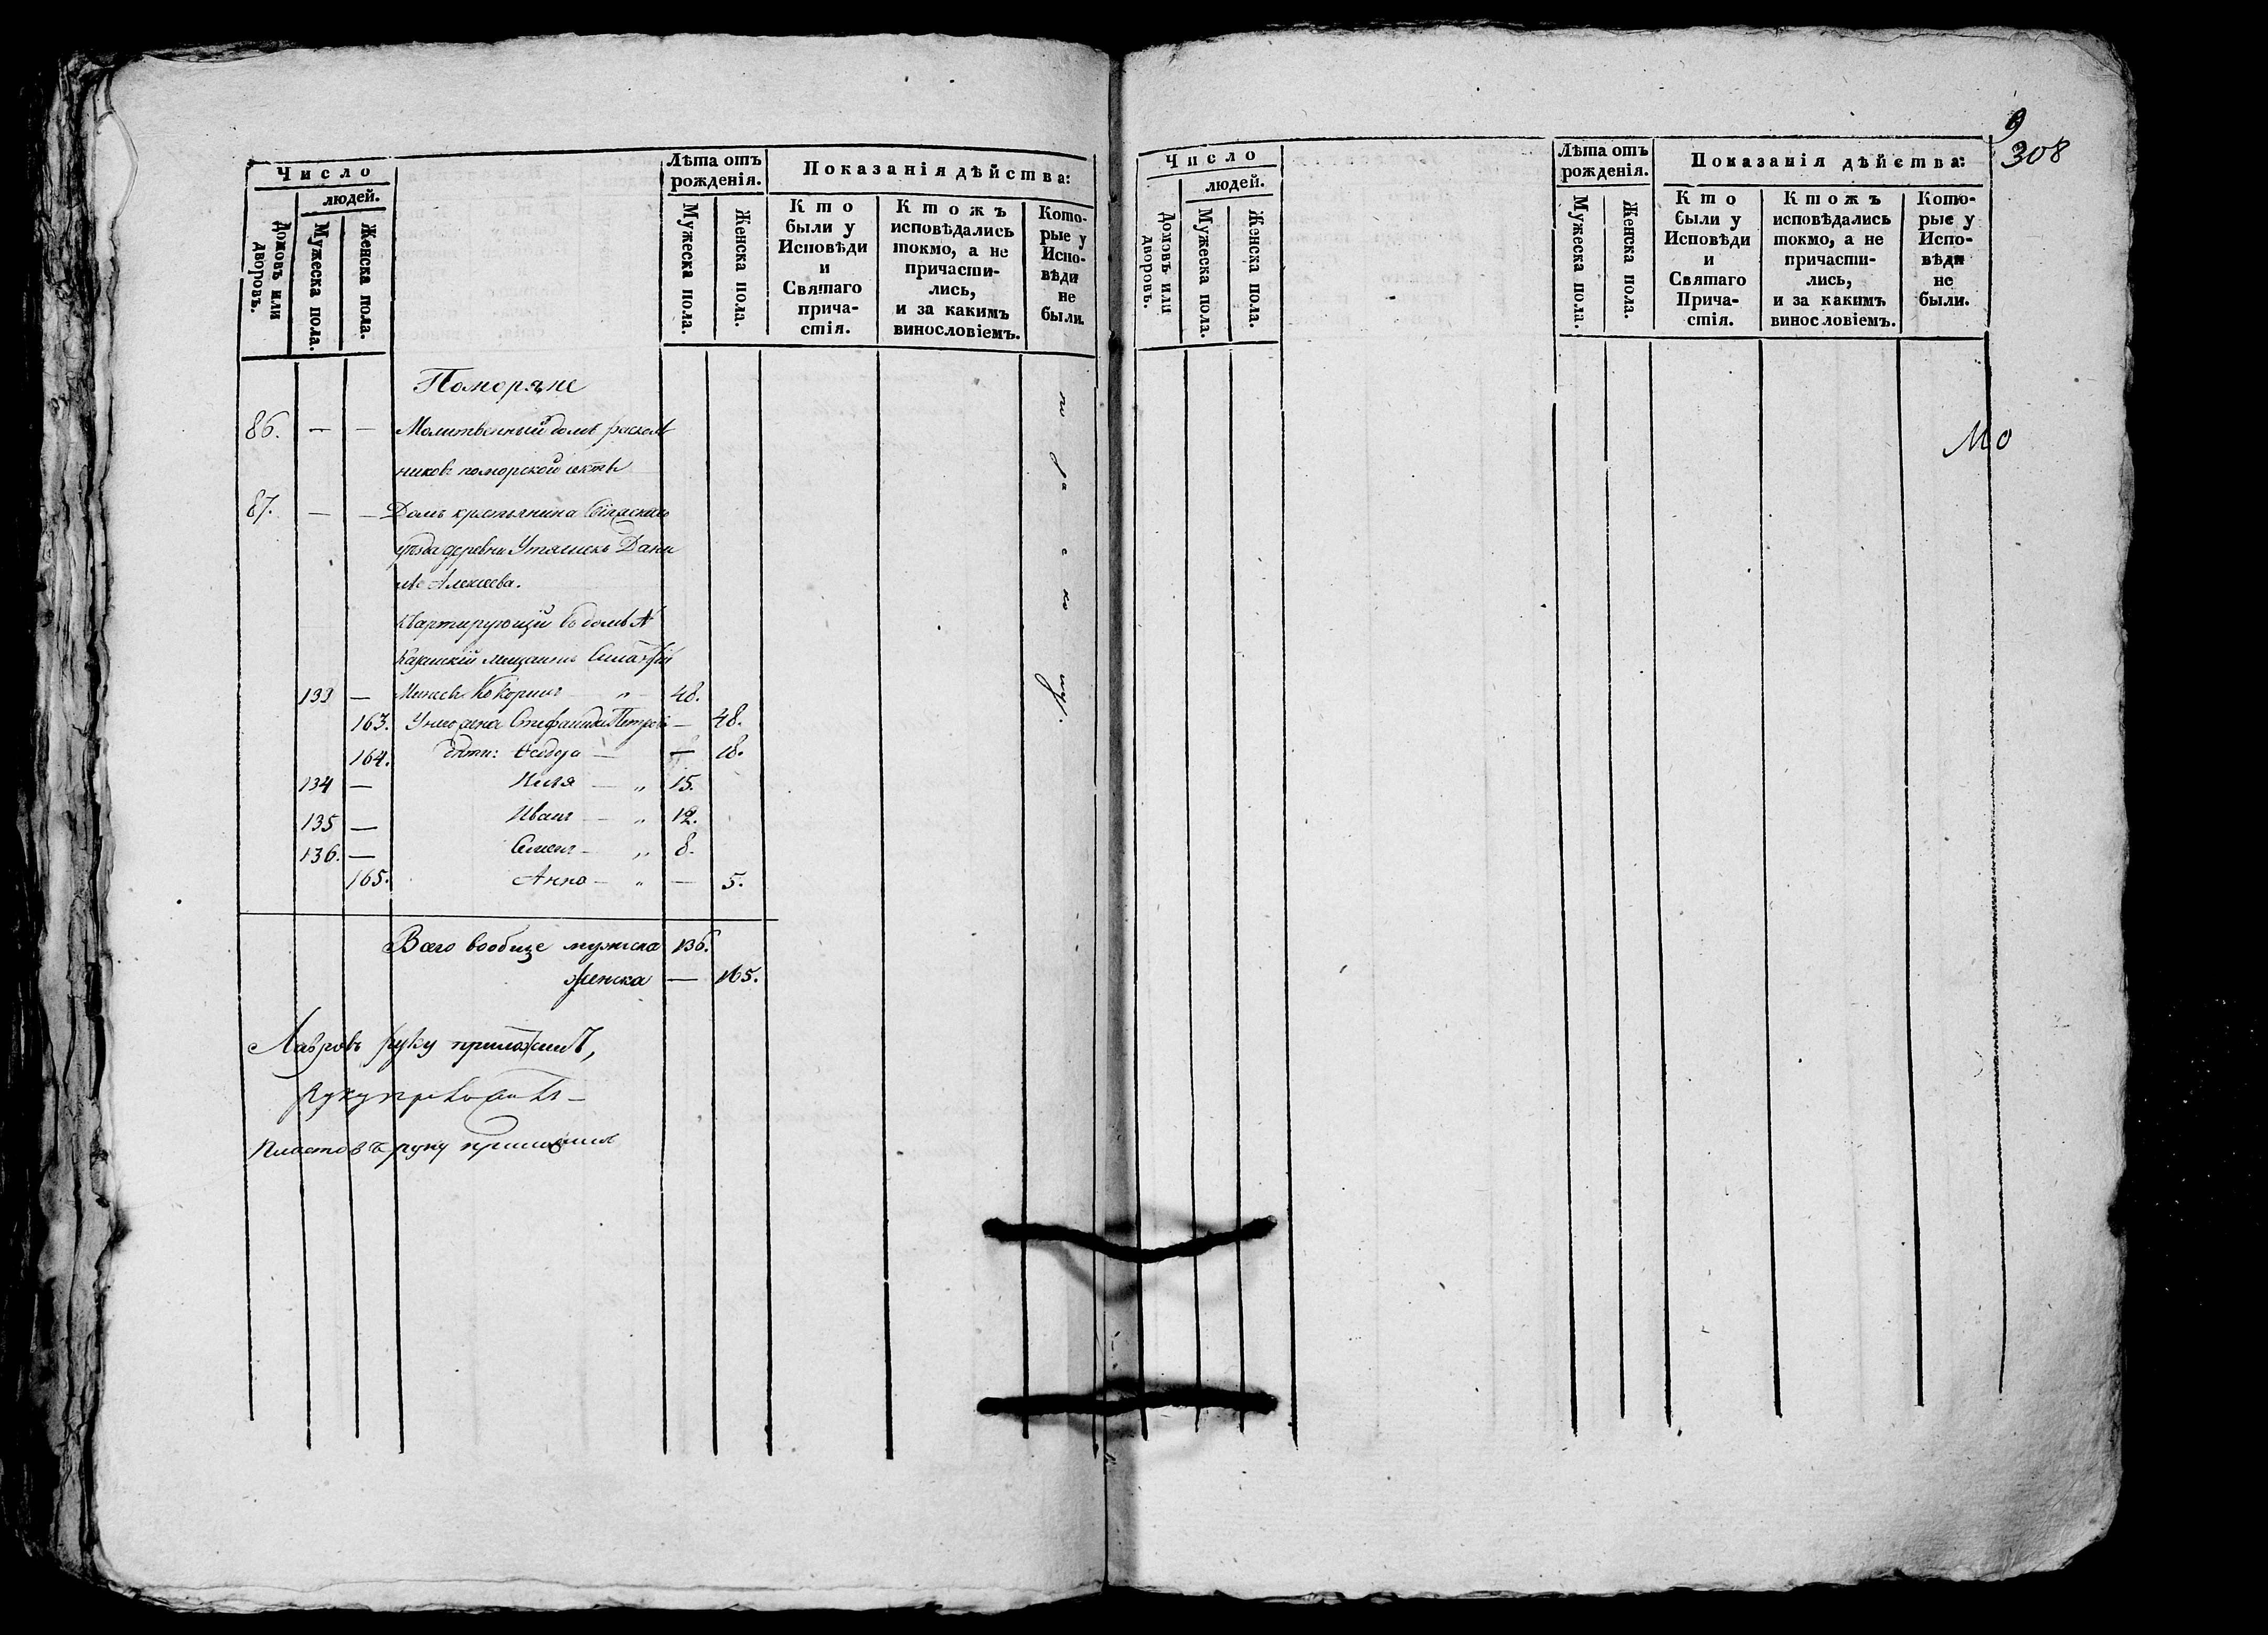 Число
людей.
Домовъ или дворовъ.
Мужеска пола.
Женска пола.
Лѣта отъ рожденія.
Мужеска пола.
Женска пола.
Показанія дѣйства:
Кто были у Исповѣди и Святаго причастія.
Ктожъ исповѣдались токмо, а не причастились, и за какимъ винословіемъ.
Которые у Исповѣди не были.
Поморяне
86. — — Молитвенный домъ расколь
никовъ поморской секты
87. — — Домъ крестьянина
уѣзда деревни Дани
ла Алексеева.
Квартирующій въ домѣ
Казанскій мещанинъ
133 — Кокоринъ — „ — 48.
163. У него жена Стефанида Петрова — 48.
164. дѣти: Ѳедора — — 18.
134 — Илья — „ 15.
135 — Иванъ — „ 12.
136. — Семенъ — „ 8.
165. Анна — „ — 5.
по расколу.
Всего вообще мужеска 136.
женска — 165.
Лавровъ руку приложилъ,
руку приложилъ
Пластовъ руку приложилъ
9
308
Число
людей.
Домовъ или дворовъ.
Мужеска пола.
Женска пола.
Лѣта отъ рожденія.
Мужеска пола.
Женска пола.
Показанія дѣйства:
Кто были у Исповѣди и Святаго Причастія.
Ктожъ исповѣдались токмо, а не причастились, и за какимъ винословіемъ.
Которые у Исповѣди не были.